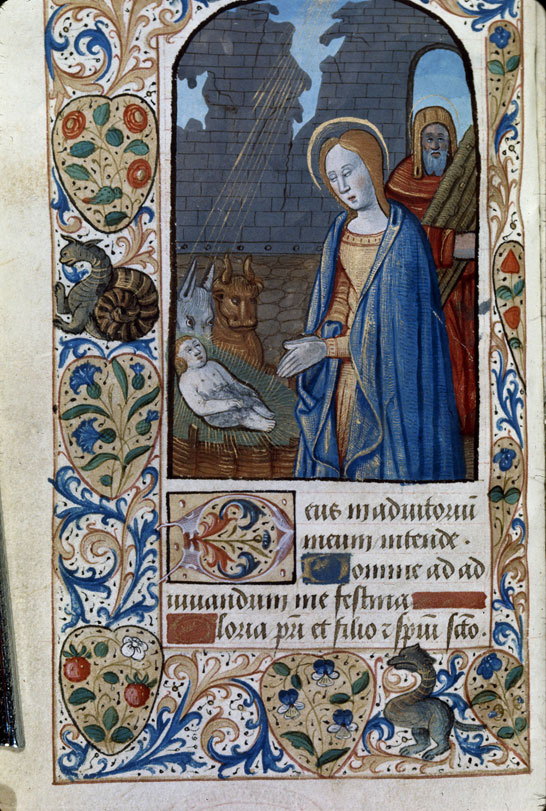 Deus in adiutoriū
meum intende.
Domine ad ad
iuuandum me festina
Gloria prī et filio ⁊ spūi sc̄to.